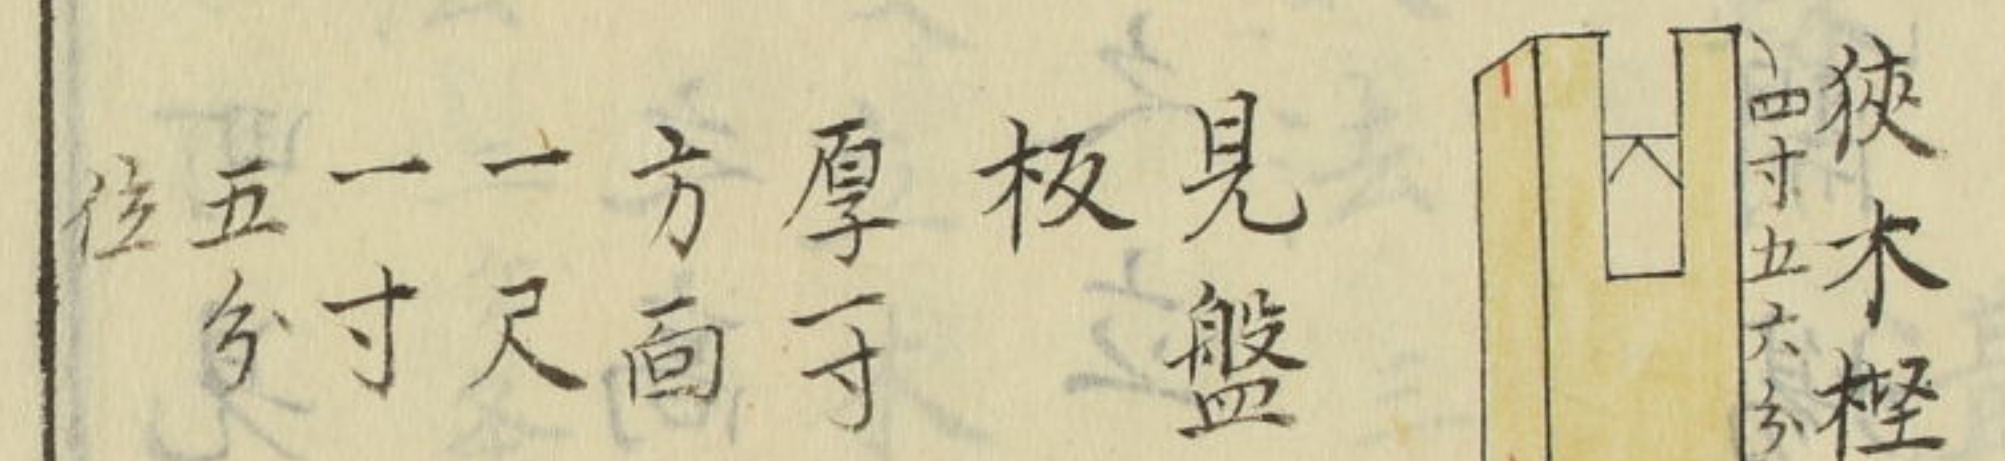 狹木樫
四寸五六分
見盤
板
厚一寸
方面
一尺
一寸
五分
位